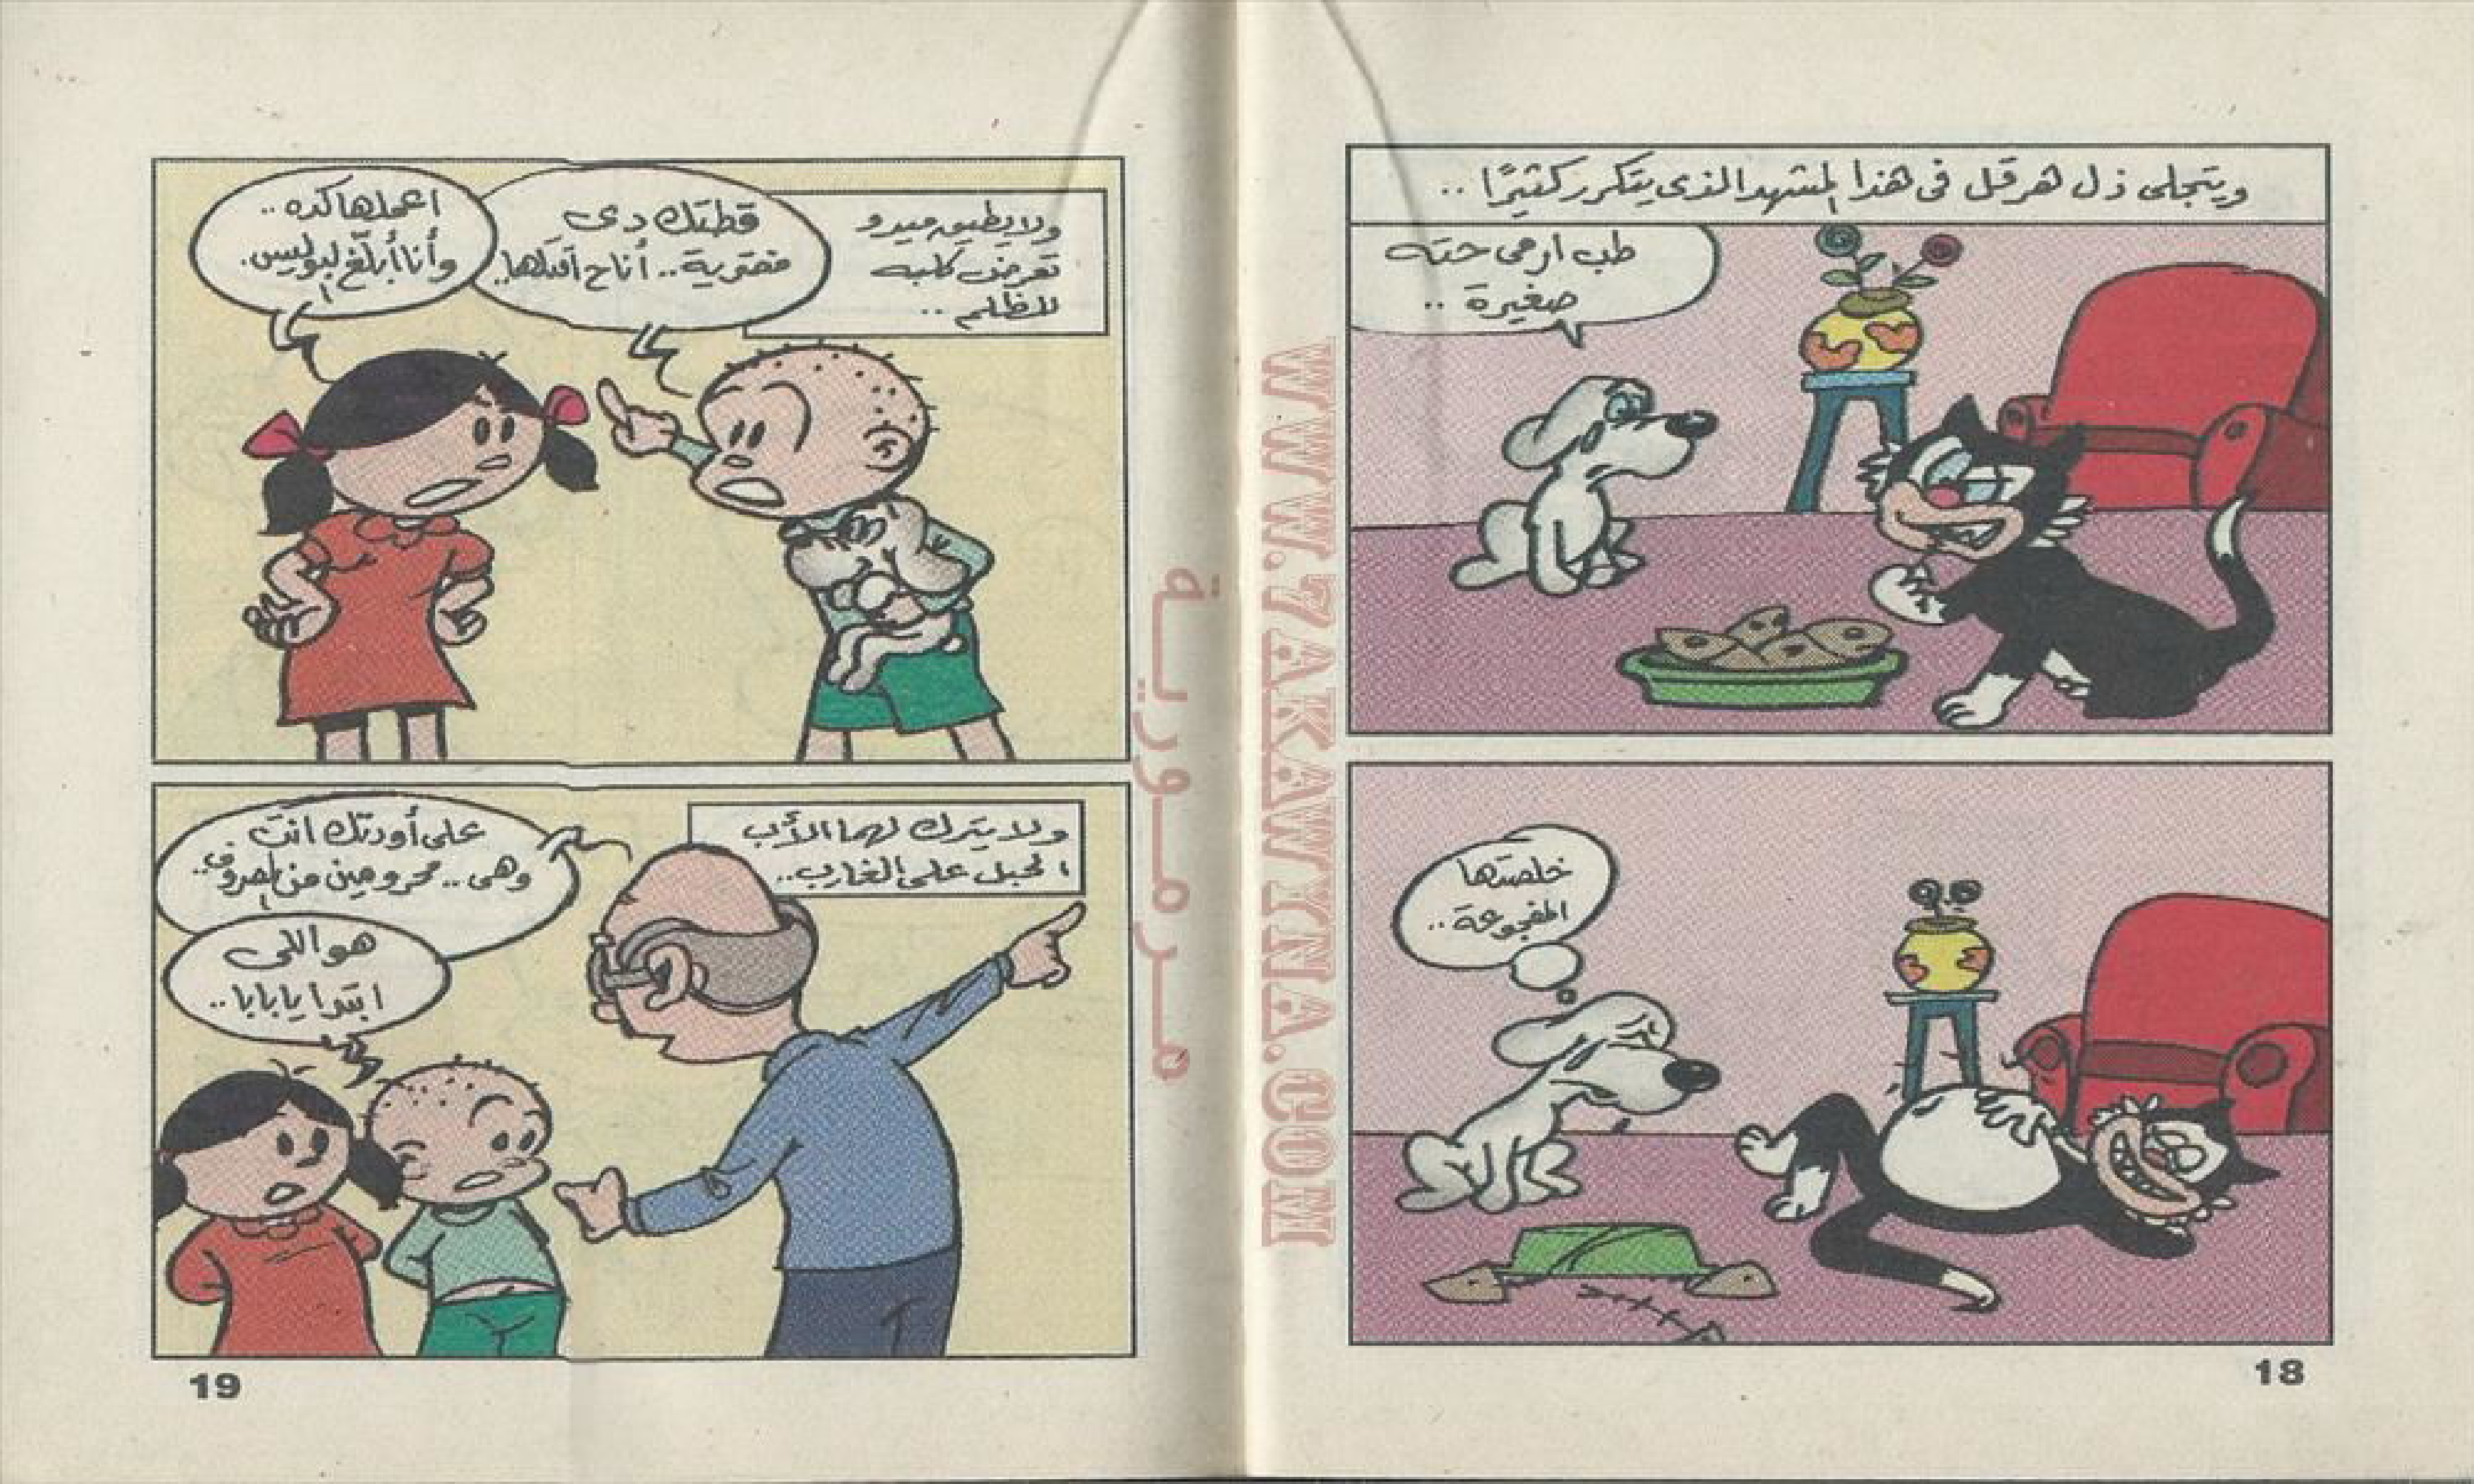 ويتجلى ذل هرقل فى هذا المشهد الذى يتكرر كثيرًا ..
طب ارمى حته
صغيرة ..
خلصتها
المفجوعة ..
18
ولا يطيق ميدو
تعرض كلبه
للظلم ..
قطتك دى
مفترية .. أنا ح أقتلها ..
اعملها كده ..
وأنا أبلّغ البوليس .
ولا يترك لهما الأب
الحبل على الغارب ..
على أودتك انت
وهى .. محرومين من المصروف ..
هو اللى
ابتدا يا بابا ..
19
مرمورية
WWW.7AKAWYNA.COM